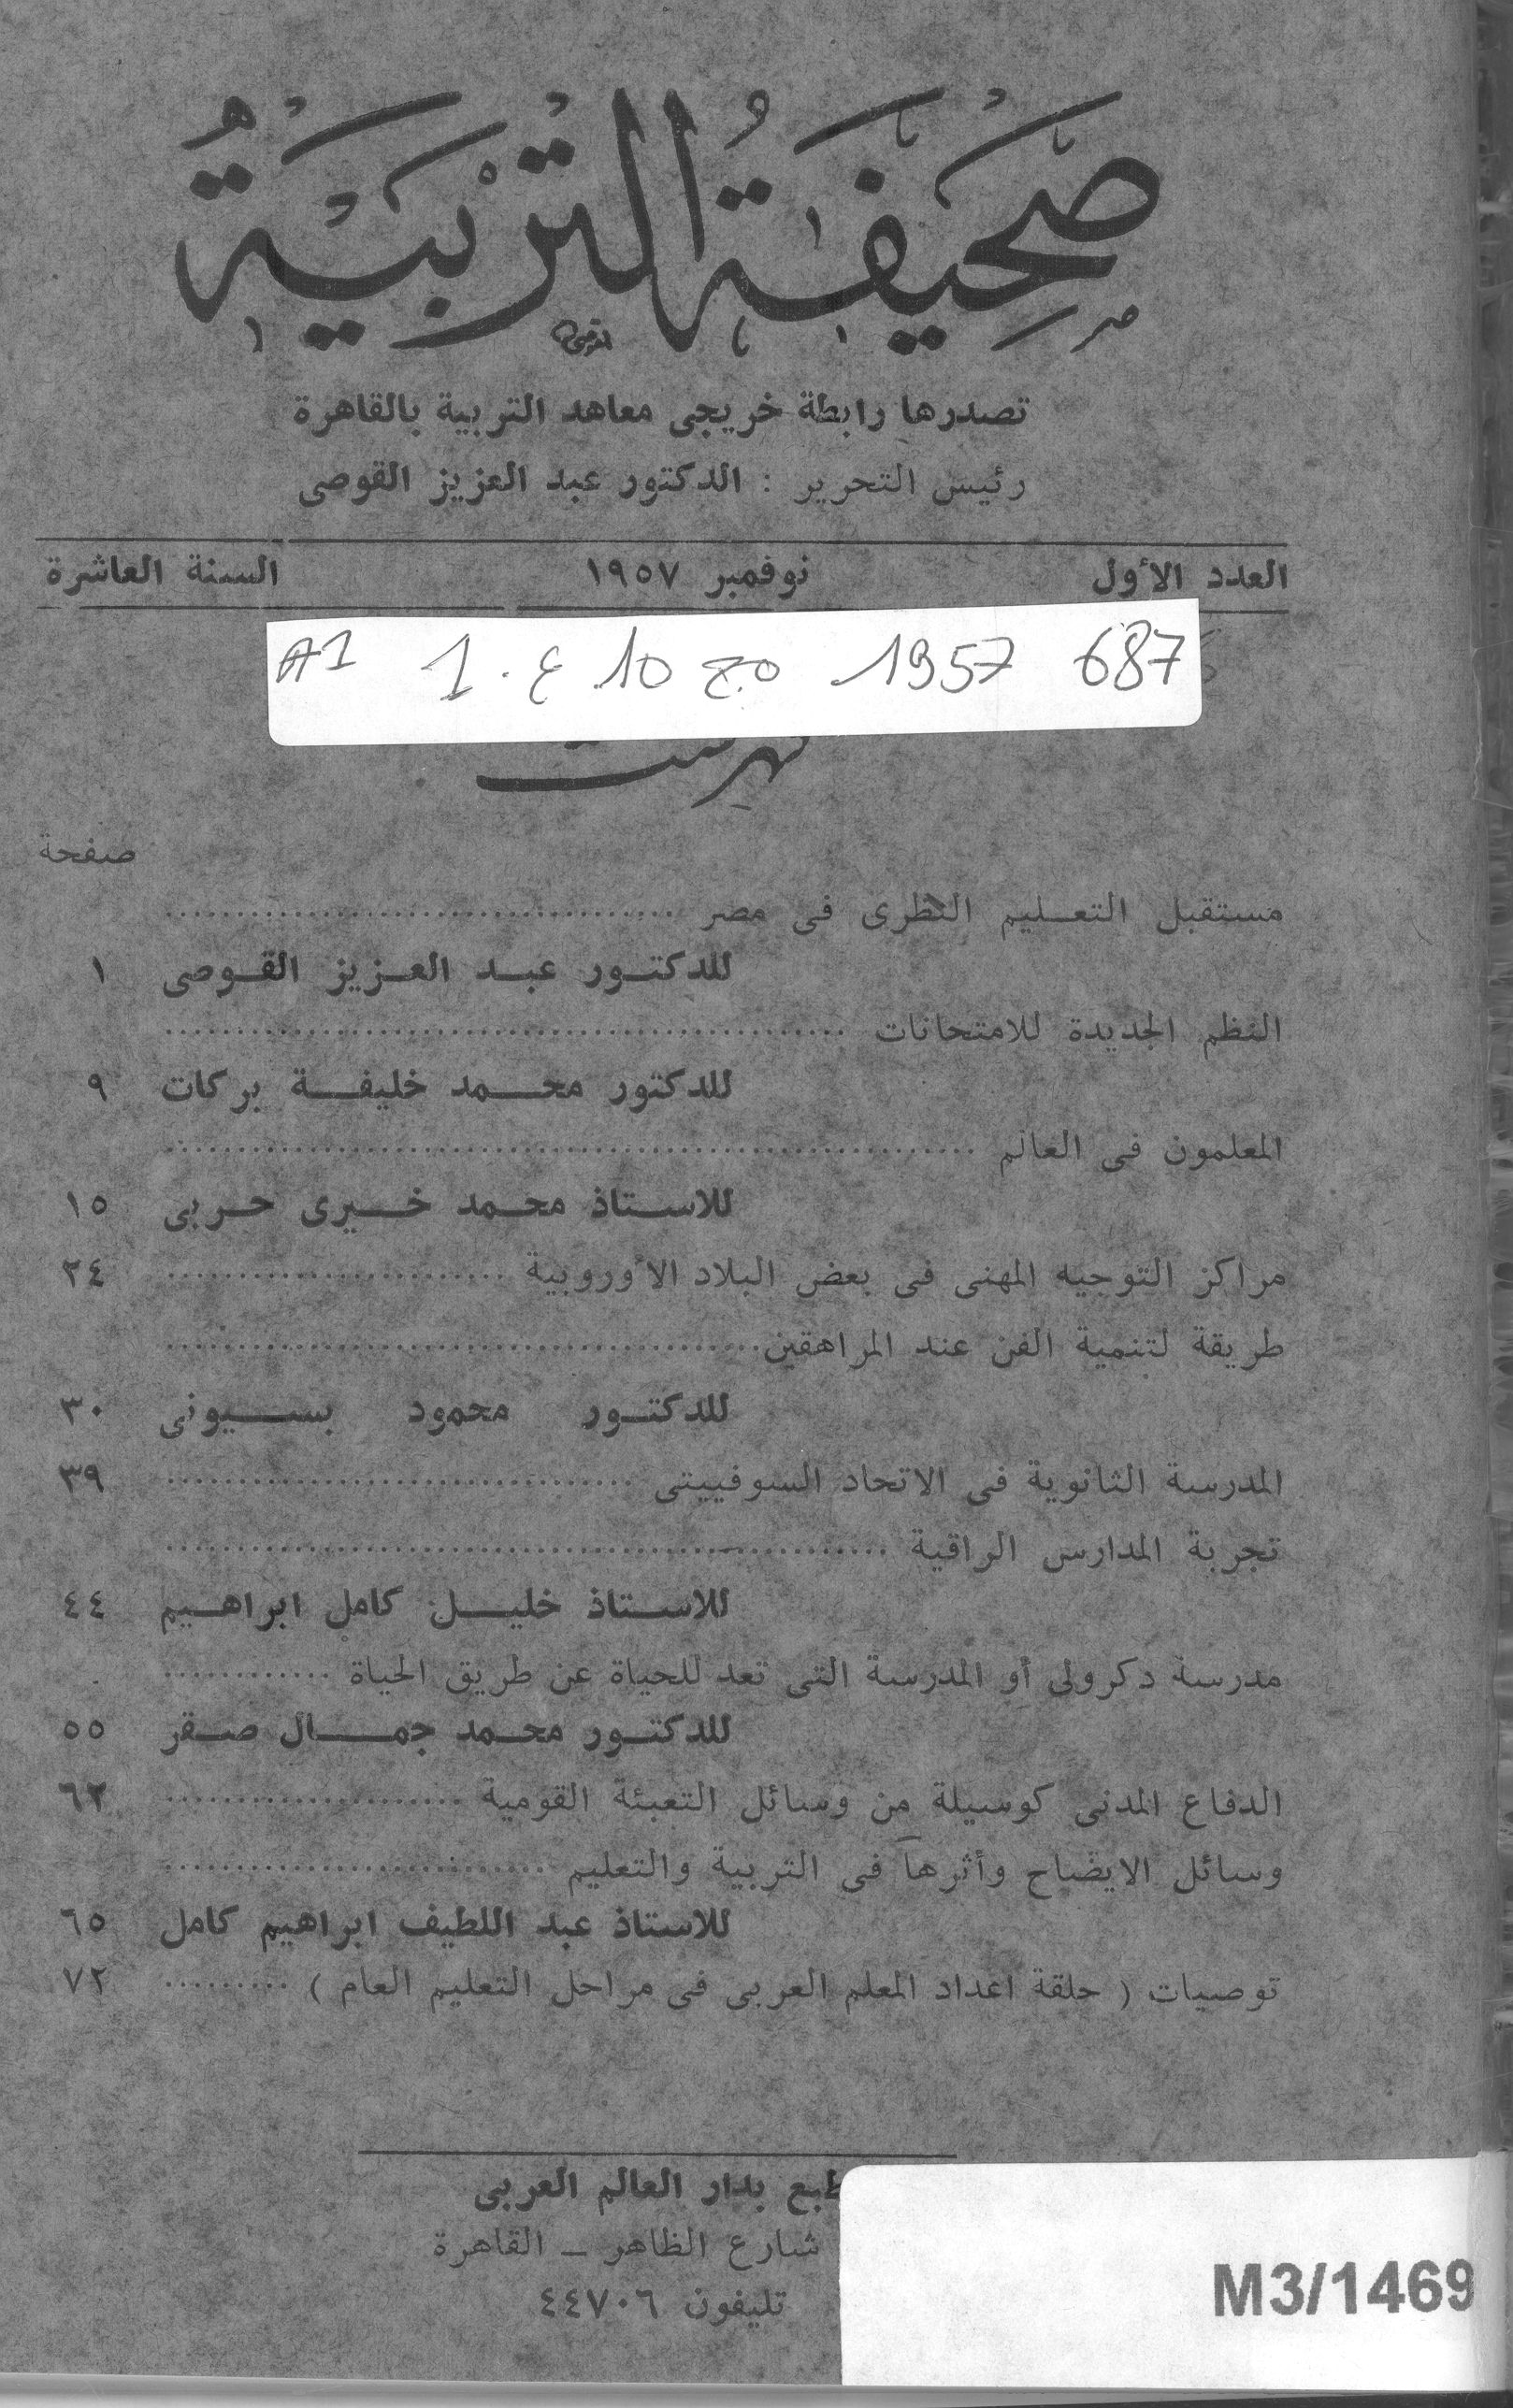 صَحِيفَةُ التَّرْبِيَةُ
تصدرها رابطة خريجى معاهد التربية بالقاهرة
رئيس التحرير : الدكتور عبد العزيز القوصى
العدد الأول نوفمبر ١٩٥٧ السنة العاشرة
687 1957 مج 10 ع. 1 A1
فهرست
صفحة
مستقبل التعليم النظرى فى مصر
للدكتور عبد العزيز القوصى ١
النظم الجديدة للامتحانات
للدكتور محمد خليفة بركات ٩
المعلمون فى العالم
للاستاذ محمد خيرى حربى ١٥
مراكز التوجيه المهنى فى بعض البلاد الأوروبية ٢٤
طريقة لتنمية الفن عند المراهقين
للدكتور محمود بسيونى ٣٠
المدرسة الثانوية فى الاتحاد السوفييتى ٣٩
تجربة المدارس الراقية
للاستاذ خليل كامل ابراهيم ٤٤
مدرسة دكرولى أو المدرسة التى تعد للحياة عن طريق الحياة
للدكتور محمد جمال صقر ٥٥
الدفاع المدنى كوسيلة من وسائل التعبئة القومية ٦٢
وسائل الايضاح وأثرها فى التربية والتعليم
للاستاذ عبد اللطيف ابراهيم كامل ٦٥
توصيات ( حلقة اعداد المعلم العربى فى مراحل التعليم العام ) ٧٢
طبع بدار العالم العربى
شارع الظاهر – القاهرة
تليفون ٤٤٧٠٦
M3/1469